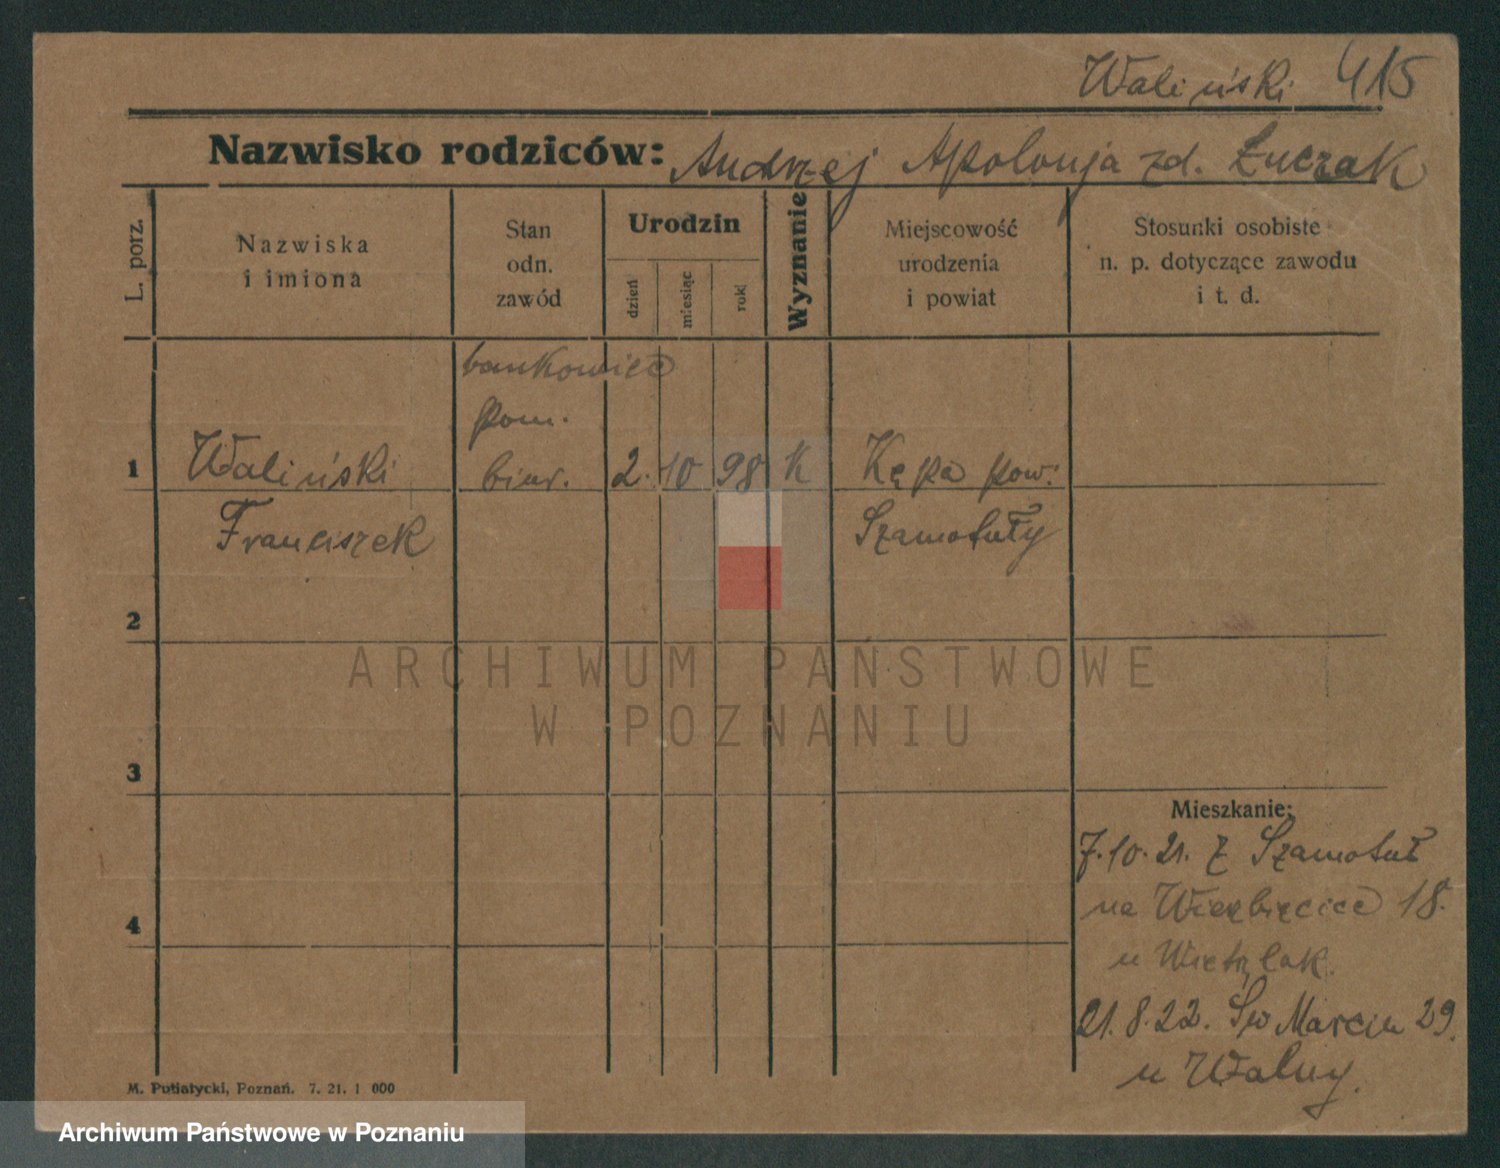 Waliński 415
Nazwisko rodziców: Andrzej Apolonja zd. Łuczak
L. porz.
Nazwiska
i imiona
Stan
odn.
zawód
Urodzin
dzień
miesiąc
rok
Wyznanie
Miejscowość
urodzenia
i powiat
Stosunki osobiste
n. p. dotyczące zawodu
i t. d.
bankowiec
pom.
1 Waliński biur. 2. 10 98 K Kępa pow:
Franciszek Szamotuły
2
ARCHIWUM PAŃSTWOWE
W POZNANIU
3
Mieszkanie:
7.10.21. z Szamotuł
na Wierzbięcice 18.
4
u Wietrzlak.
21.8.22. Św Marcin 29.
u Walny.
M. Putiatycki, Poznań. 7. 21. 1 000
Archiwum Państwowe w Poznaniu